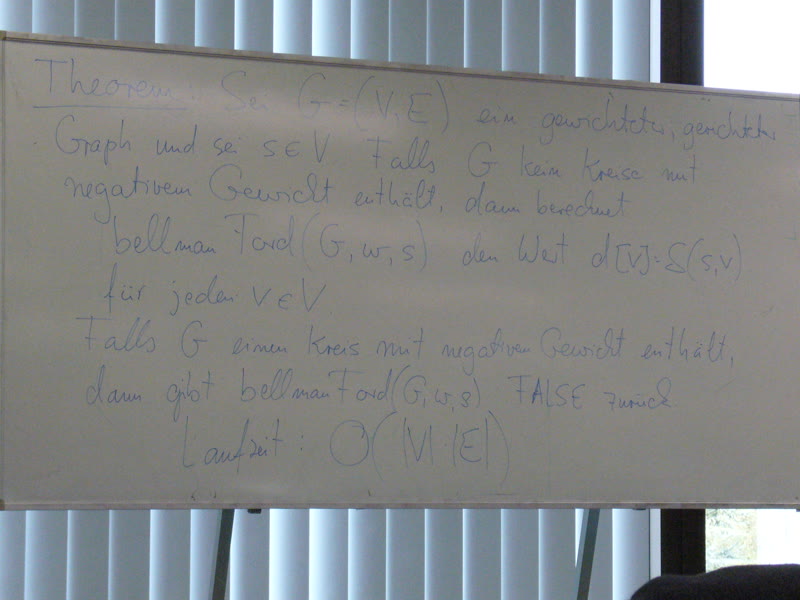 Theorem: Sei G=(V,E) ein gewichteter, gerichteter
Graph und sei s∈V Falls G kein Kreise mit
negativem Gewicht enthält, dann berechnet
bellmanFord(G,w,s) den Wert d[v]=δ(s,v)
für jeden v∈V.
Falls G einen Kreis mit negativen Gewicht enthält,
dann gibt bellmanFord(G,w,s) FALSE zurück
Laufzeit: O(|V|·|E|)